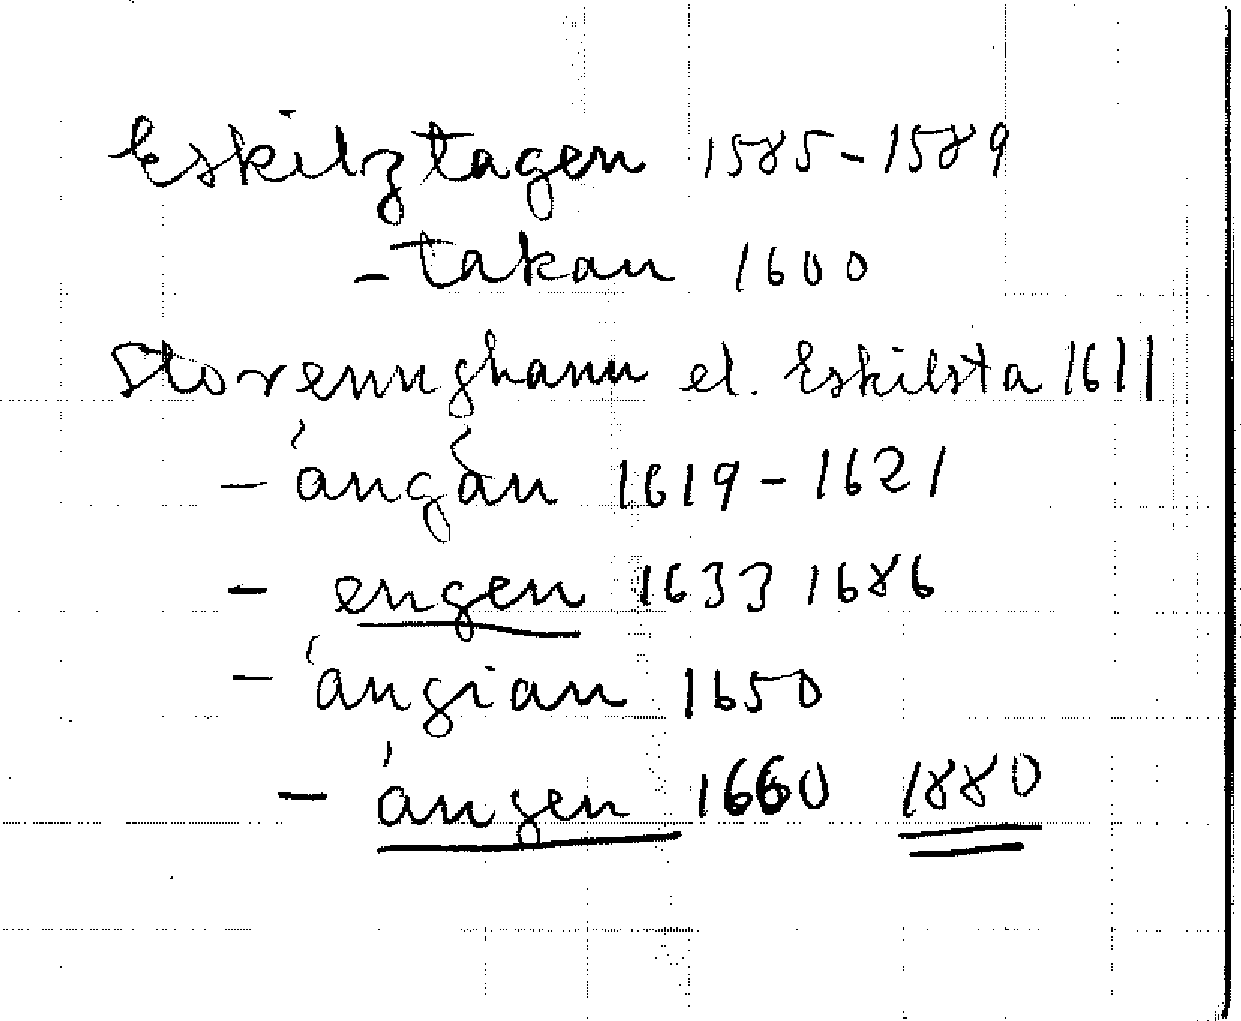 Eskilztagen 1585-1589
-takan 1600
Storennghann el. Eskilsta 1611
- ángán 1619-1621
- engen 1633 1686
- ángian 1650
- ángen 1660 1880